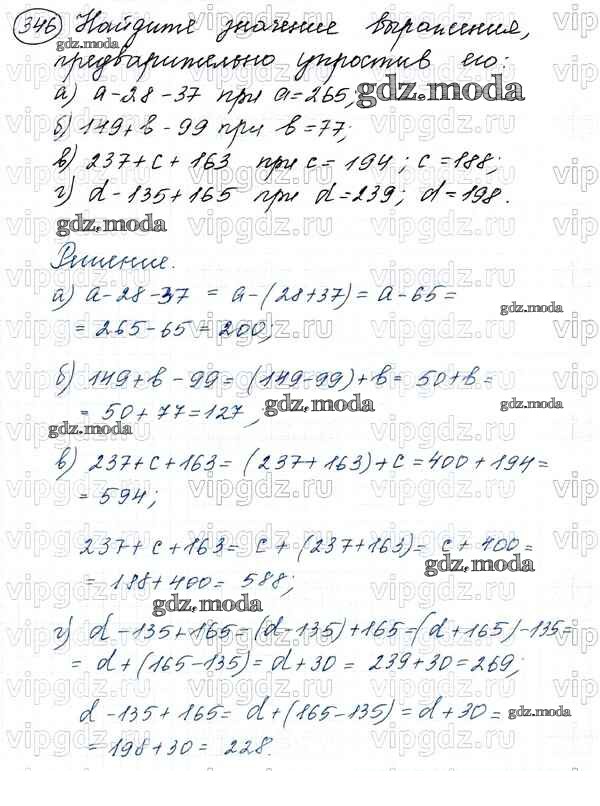 346 Найдите значение выражения,
предварительно упростив его:
а) a-28-37 при a=265;
б) 149+b-99 при b=77;
в) 237+c+163 при c=194; c=188;
г) d-135+165 при d=239; d=198.
Решение.
а) a-28-37 = a-(28+37) = a-65 =
= 265-65 = 200;
б) 149+b-99 = (149-99)+b = 50+b =
= 50+77 = 127;
в) 237+c+163 = (237+163)+c = 400+194 =
= 594;
237+c+163 = c+(237+163) = c+400 =
= 188+400 = 588;
г) d-135+165 = (d-135)+165 = (d+165)-135 =
= d+(165-135) = d+30 = 239+30 = 269;
d-135+165 = d+(165-135) = d+30 =
= 198+30 = 228.
gdz.moda
vipgdz.ru